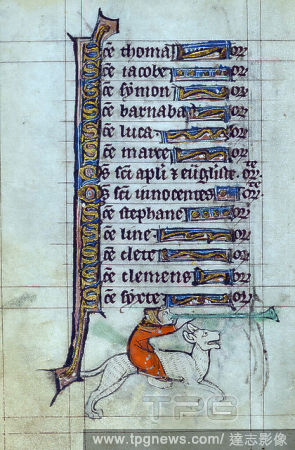 s̄ce thoma or̄
s̄ce iacobe or̄
s̄ce symon or̄
s̄ce barnaba or̄
s̄ce luca or̄
s̄ce marce or̄
Os sc̄i apli ⁊ euḡliste or̄te
Os sc̄i innocentes or̄te
s̄ce stephane or̄
s̄ce line or̄
s̄ce clete or̄
s̄ce clemens or̄
s̄ce syxte or̄
TPG
www.tpgnews.com / 達志影像